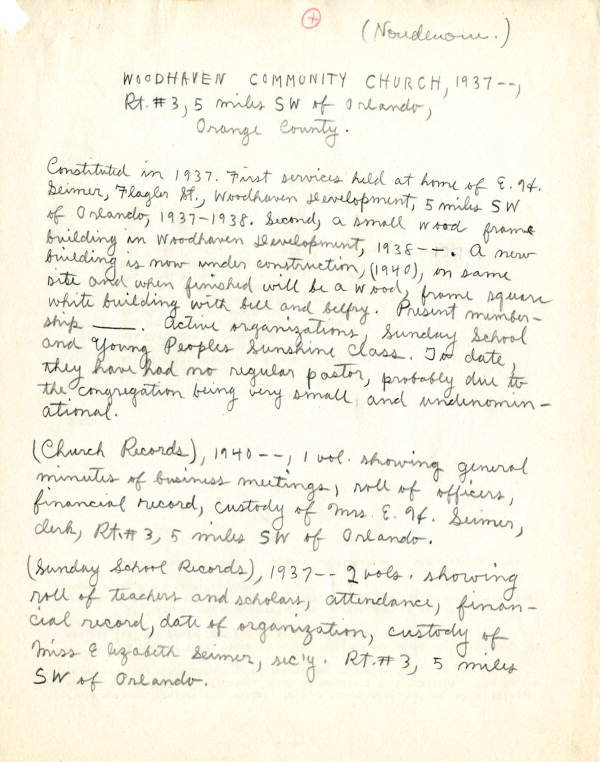 (Nondenom.)
WOODHAVEN COMMUNITY CHURCH, 1937--,
Rt. #3, 5 miles SW of Orlando,
Orange County.
Constituted in 1937. First services held at home of E. H.
Seimer, Flagler St., Woodhaven Development, 5 miles SW
of Orlando, 1937-1938. Second, a small wood frame
building in Woodhaven Development, 1938--. A new
building is now under construction, (1940), on same
site and when finished will be a wood, frame square
white building with bell and belfry. Present member-
ship ____. Active organizations, Sunday School
and Young Peoples Sunshine Class. To date,
they have had no regular pastor, probably due to
the congregation being very small and undenomin-
ational.
(Church Records), 1940--, 1 vol. showing general
minutes of business meetings, roll of officers,
financial record, custody of Mrs. E. H. Seimer,
clerk, Rt. #3, 5 miles SW of Orlando.
(Sunday School Records), 1937-- 2 vols. showing
roll of teachers and scholars, attendance, finan-
cial record, date of organization, custody of
Miss Elizabeth Seimer, sec'y. Rt. #3, 5 miles
SW of Orlando.